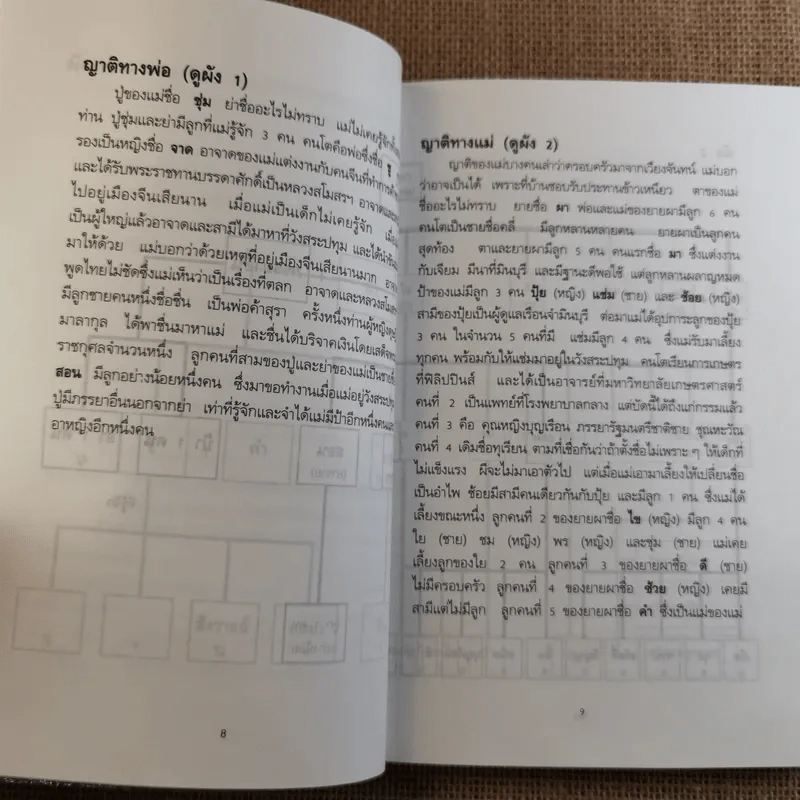 ญาติทางพ่อ (ดูผัง 1)
ปู่ของแม่ชื่อ ชุ่ม ย่าชื่ออะไรไม่ทราบ แม่ไม่เคยรู้จักทั้ง
ท่าน ปู่ชุ่มและย่ามีลูกที่แม่รู้จัก 3 คน คนโตคือพ่อซึ่งชื่อ ชู
รองเป็นหญิงชื่อ จาด อาจาดของแม่แต่งงานกับคนจีนที่ทำการค้า
และได้รับพระราชทานบรรดาศักดิ์เป็นหลวงสโมสรฯ อาจาดและ
ไปอยู่เมืองจีนเสียนาน เมื่อแม่เป็นเด็กไม่เคยรู้จัก เมื่อ
เป็นผู้ใหญ่แล้วอาจาดและสามีได้มาหาที่วังสระปทุม และได้นำ
มาให้ด้วย แม่บอกว่าด้วยเหตุที่อยู่เมืองจีนเสียนานมาก อาจาด
พูดไทยไม่ชัดซึ่งแม่เห็นว่าเป็นเรื่องที่ตลก อาจาดและหลวงสโมสร
มีลูกชายคนหนึ่งชื่อชื่น เป็นพ่อค้าสุรา ครั้งหนึ่งท่านผู้หญิง
มาลากุล ได้พาชื่นมาหาแม่ และชื่นได้บริจาคเงินโดยเสด็จพระ
ราชกุศลจำนวนหนึ่ง ลูกคนที่สามของปู่และย่าของแม่เป็นชาย
สอน มีลูกอย่างน้อยหนึ่งคน ซึ่งมาขอทำงานเมื่อแม่อยู่วังสระปทุม
ปู่มีภรรยาอื่นนอกจากย่า เท่าที่รู้จักและจำได้แม่มีป้าอีกหนึ่งคนและ
อาหญิงอีกหนึ่งคน
8
ญาติทางแม่ (ดูผัง 2)
ญาติของแม่บางคนเล่าว่าครอบครัวมาจากเวียงจันทน์ แม่บอก
ว่าอาจเป็นได้ เพราะที่บ้านชอบรับประทานข้าวเหนียว ตาของแม่
ชื่ออะไรไม่ทราบ ยายชื่อ ผา พ่อและแม่ของยายผามีลูก 6 คน
คนโตเป็นชายชื่อคลี่ มีลูกหลานหลายคน ยายผาเป็นลูกคน
สุดท้อง ตาและยายผามีลูก 5 คน คนแรกชื่อ มา ซึ่งแต่งงาน
กับเจียม มีนาที่มีนบุรี และมีฐานะดีพอใช้ แต่ลูกหลานผลาญหมด
ป้าของแม่มีลูก 3 คน ปุ้ย (หญิง) แช่ม (ชาย) และ ช้อย (หญิง)
สามีของปุ้ยเป็นผู้ดูแลเรือนจำมีนบุรี ต่อมาแม่ได้อุปการะลูกของปุ้ย
3 คน ในจำนวน 5 คนที่มี แช่มมีลูก 4 คน ซึ่งแม่รับมาเลี้ยง
ทุกคน พร้อมกับให้แช่มมาอยู่ในวังสระปทุม คนโตเรียนการเกษตร
ที่ฟิลิปปินส์ และได้เป็นอาจารย์ที่มหาวิทยาลัยเกษตรศาสตร์
คนที่ 2 เป็นแพทย์ที่โรงพยาบาลกลาง แต่บัดนี้ได้ถึงแก่กรรมแล้ว
คนที่ 3 คือ คุณหญิงบุญเรือน ภรรยารัฐมนตรีชาติชาย ชุณหะวัณ
คนที่ 4 เดิมชื่อทุเรียน ตามที่เชื่อกันว่าถ้าตั้งชื่อไม่เพราะ ๆ ให้เด็กที่
ไม่แข็งแรง ผีจะไม่มาเอาตัวไป แต่เมื่อแม่เอามาเลี้ยงให้เปลี่ยนชื่อ
เป็นอำไพ ช้อยมีสามีคนเดียวกันกับปุ้ย และมีลูก 1 คน ซึ่งแม่ได้
เลี้ยงขณะหนึ่ง ลูกคนที่ 2 ของยายผาชื่อ ไข (หญิง) มีลูก 4 คน
ใย (ชาย) ชม (หญิง) พร (หญิง) และชุ่ม (ชาย) แม่เคย
เลี้ยงลูกของใย 2 คน ลูกคนที่ 3 ของยายผาชื่อ ดี (ชาย)
ไม่มีครอบครัว ลูกคนที่ 4 ของยายผาชื่อ ซ้วย (หญิง) เคยมี
สามีแต่ไม่มีลูก ลูกคนที่ 5 ของยายผาชื่อ คำ ซึ่งเป็นแม่ของแม่
9